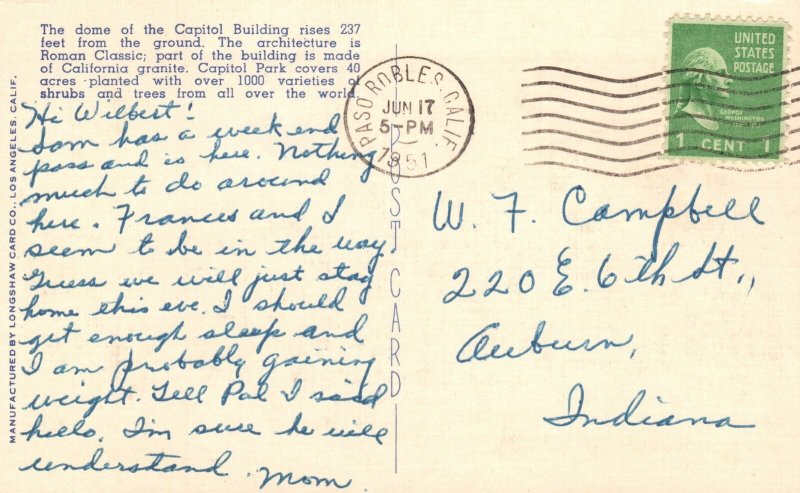 The dome of the Capitol Building rises 237
feet from the ground. The architecture is
Roman Classic; part of the building is made
of California granite. Capitol Park covers 40
acres planted with over 1000 varieties of
shrubs and trees from all over the world.
Hi Wilbert!
Sam has a week end
pass and is here. Nothing
much to do around
here. Frances and I
seem to be in the way.
Guess we will just stay
home this eve. I should
get enough sleep and
I am probably gaining
weight. Tell Pal I said
hello. I'm sure he will
understand. Mom.
MANUFACTURED BY LONGSHAW CARD CO., LOS ANGELES, CALIF.
POST CARD
PASO ROBLES, CALIF.
JUN 17
5-PM
1951
UNITED
STATES
POSTAGE
GEORGE
WASHINGTON
1 CENT 1
W. F. Campbell
220 E. 6th St.,
Auburn,
Indiana